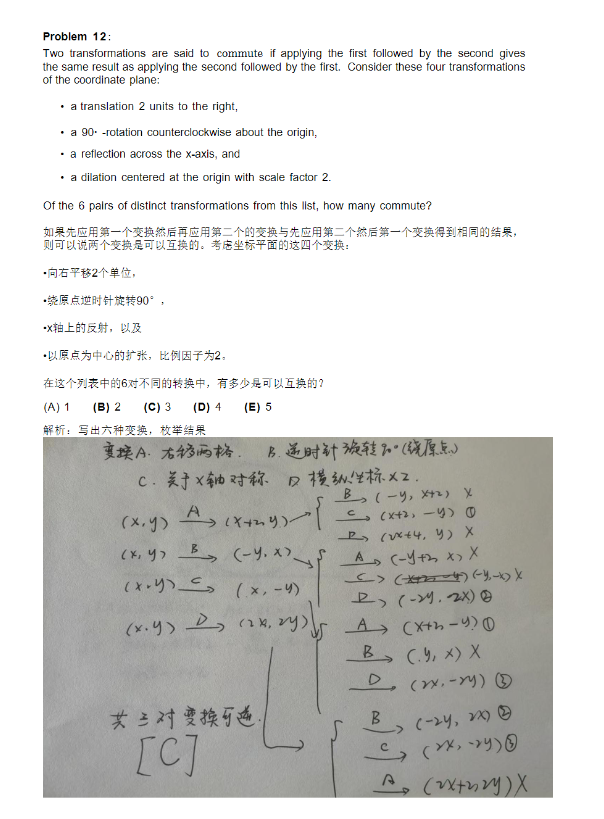 Problem 12:
Two transformations are said to commute if applying the first followed by the second gives
the same result as applying the second followed by the first. Consider these four transformations
of the coordinate plane:
• a translation 2 units to the right,
• a 90· -rotation counterclockwise about the origin,
• a reflection across the x-axis, and
• a dilation centered at the origin with scale factor 2.
Of the 6 pairs of distinct transformations from this list, how many commute?
如果先应用第一个变换然后再应用第二个的变换与先应用第二个然后第一个变换得到相同的结果，
则可以说两个变换是可以互换的。考虑坐标平面的这四个变换：
•向右平移2个单位，
•绕原点逆时针旋转90°，
•x轴上的反射，以及
•以原点为中心的扩张，比例因子为2。
在这个列表中的6对不同的转换中，有多少是可以互换的？
(A) 1 (B) 2 (C) 3 (D) 4 (E) 5
解析：写出六种变换，枚举结果
变换A. 右移两格. B. 逆时针旋转90°(绕原点)
C. 关于X轴对称. D 横纵坐标×2.
(x,y) A→ (x+2,y)
B→ (-y, x+2) X
C→ (x+2, -y) ①
D→ (2x+4, y) X
(x,y) B→ (-y,x)
A→ (-y+2, x) X
C→ (-y,-x) X
D→ (-2y, 2x) ②
(x,y) C→ (x,-y)
A→ (x+2,-y) ①
B→ (y, x) X
D→ (2x,-2y) ③
(x,y) D→ (2x,2y)
B→ (-2y, 2x) ②
C→ (2x,-2y) ③
A→ (2x+2,2y) X
共三对变换可逆.
[C]